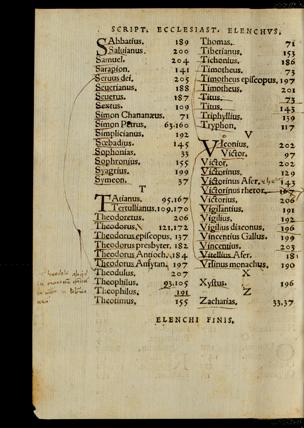 SCRIPT. ECCLESIAST. ELENCHVS.
SAbbatius. 189
Saluianus. 200
Samuel. 204
Sarapion. 141
Seruus dei. 205
Seuerianus. 188
Seuerus. 187
Sextus. 109
Simon Chananæus. 71
Simon Petrus. 63.160
Simplicianus. 192
Sœbadius. 145
Sophonias. 33
Sophronius. 155
Syagrius. 199
Symeon. 37
T
TAtianus. 95.167
Tertullianus. 109.170
Theodoretus. 206
Theodorus. 121.172
Theodorus episcopus. 137
Theodorus presbyter. 182
Theodorus Antioch. 184
Theodorus Ansytan. 197
Theodulus. 207
Theophilus. 93.105
Theophilus. 191
Theotimus. 155
Thomas. 71
Tiberianus. 153
Tichonius. 186
Timotheus. 73
Timotheus episcopus. 197
Timotheus. 201
Titus. 73
Titus. 143
Triphyllius. 139
Tryphon. 117
V
VAleonius. 202
Victor. 97
Victor. 202
Victorinus. 129
Victorinus Afer. 143
Victorinus rhetor. 167
Victorius. 206
Vigilantius. 191
Vigilius. 192
Vigilius diaconus. 196
Vincentius Gallus. 199
Vincentius. 203
Vitellius Afer. 181
Vrsinus monachus. 190
X
Xystus. 196
Z
Zacharias. 33.37
ELENCHI FINIS.